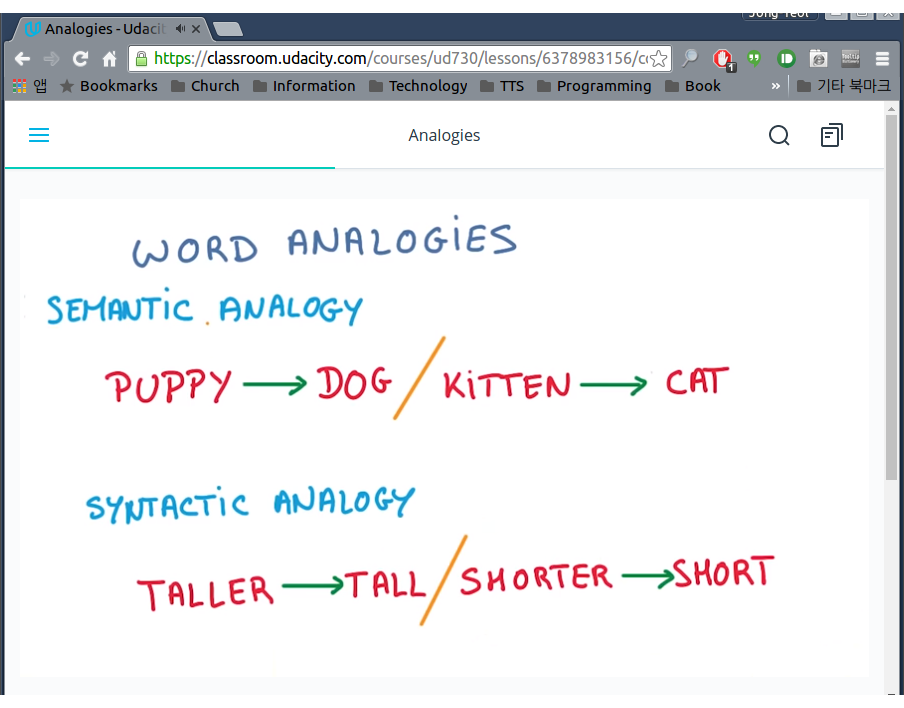 Analogies - Udacit
https://classroom.udacity.com/courses/ud730/lessons/6378983156/c
1
앱 Bookmarks Church Information Technology TTS Programming Book » 기타 북마크
Analogies
WORD ANALOGIES
SEMANTIC ANALOGY
PUPPY → DOG / KITTEN → CAT
SYNTACTIC ANALOGY
TALLER → TALL / SHORTER → SHORT